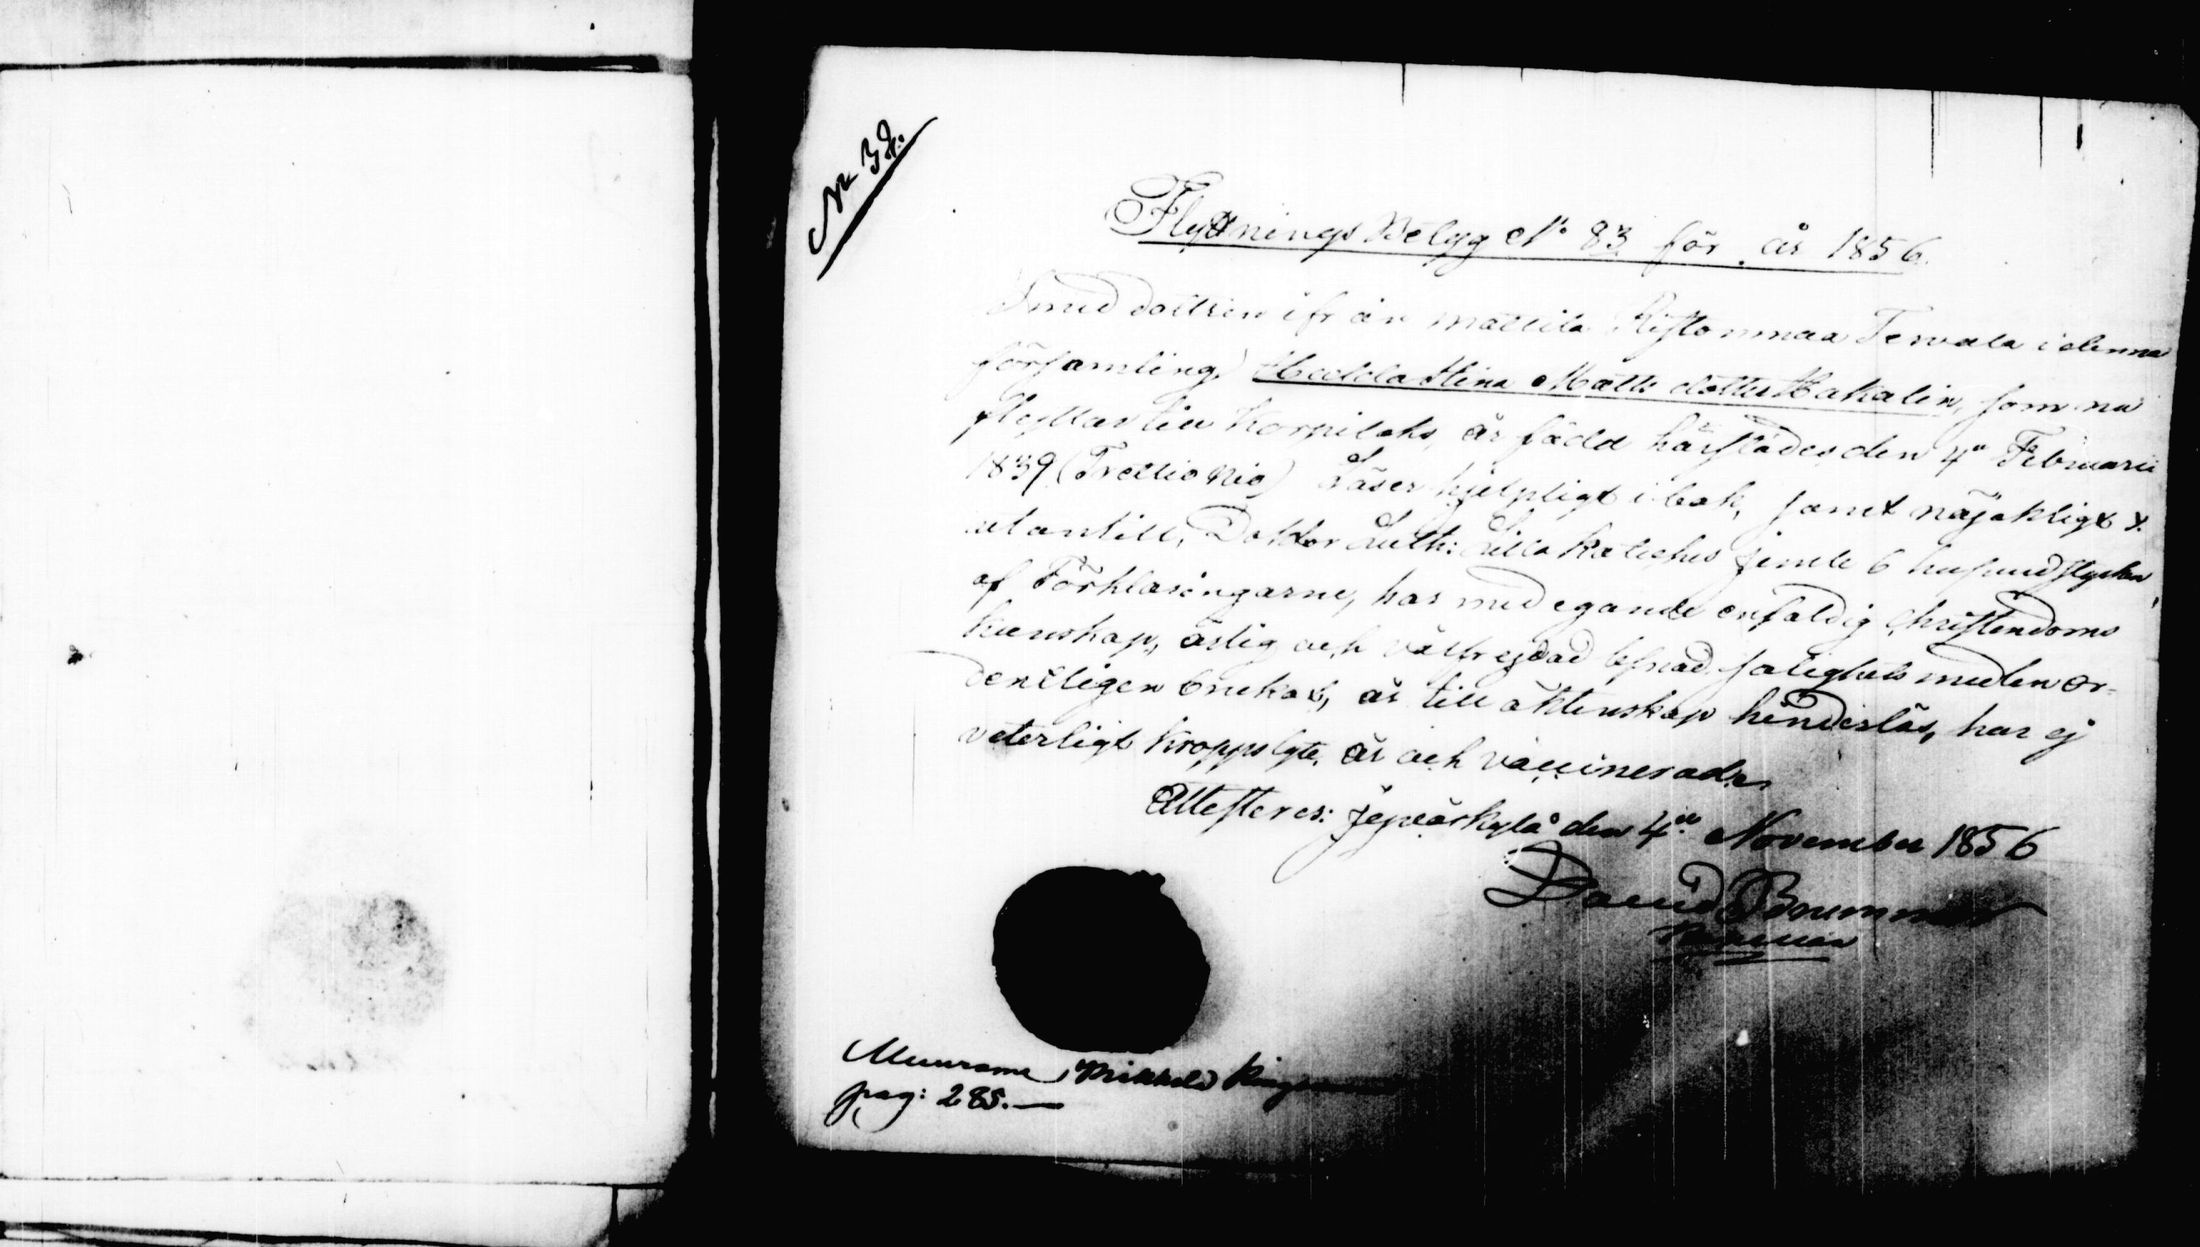 No 32.
Flyttnings Belyg No 83 för år 1856.
Smed dottren ifrån Mattila Ristonmaa Tervala i denna
församling, Hedda Stina Matts dotter Hakalin, som nu
flyttar till Korpilaks, är född härstädes den 4de Februarii
1839 (Trettio Nio) Läser hjelpligt i bok, samt nöjaktigt
utantill, Doktor Luth: Lilla Kateches jemte 6 hufvudstycken
af Förklaringarne, har med egande enfaldig Christendoms
kunskap, ärlig och välfrejdad lefnad salighets medlen or-
dentligen brukat, är till äktenskap hinderslös, har ej
veterligt kroppslyte, är och vaccinerad.
Attesteres: Jyväskylä den 4de November 1856
David Brummer
Muurame, Mikkola
pag: 285.—